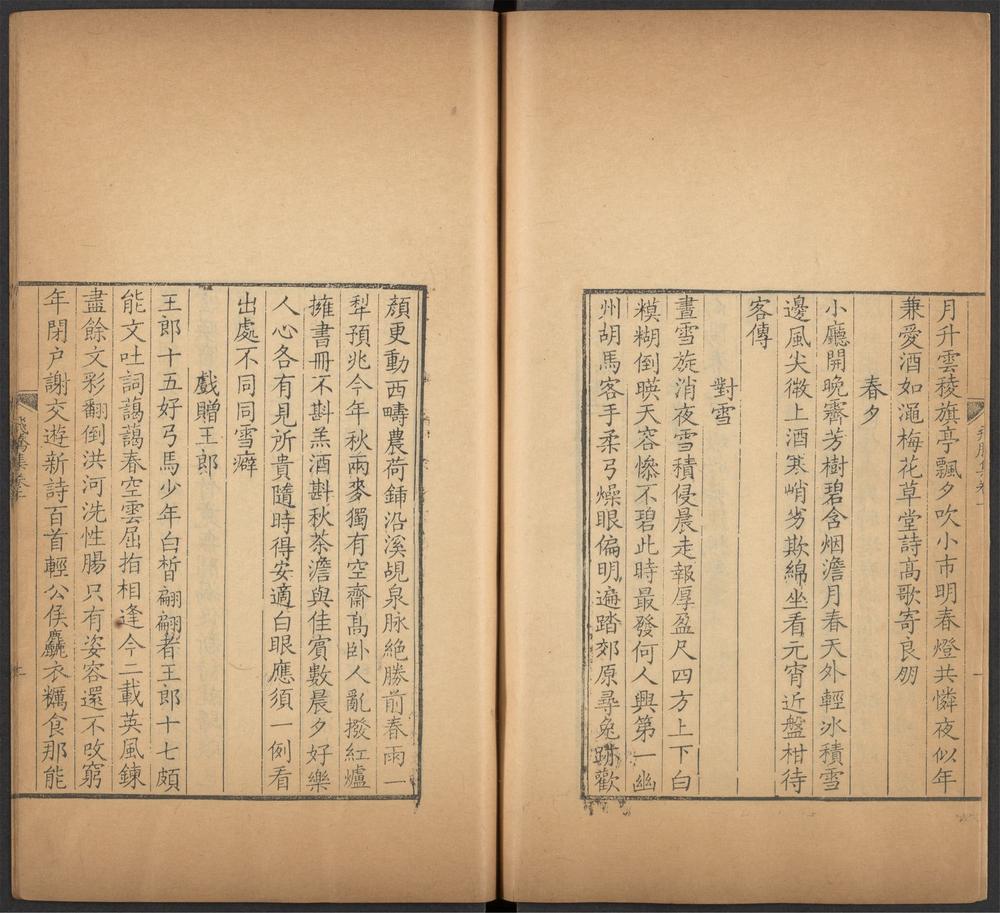 月升雲稜旗亭飄夕吹小市明春燈共憐夜似年
兼愛酒如澠梅花草堂詩高歌寄良朋
春夕
小廳開晚霽芳樹碧含烟澹月春天外輕冰積雪
邊風尖微上酒寒峭劣欺綿坐看元宵近盤柑待
客傳
對雪
晝雪旋消夜雪積侵晨走報厚盈尺四方上下白
糢糊倒暎天容慘不碧此時最發何人興第一幽
州胡馬客手柔弓燥眼偏明遍踏郊原尋兔跡歡
顏更動西疇農荷鍤沿溪覘泉脉絕勝前春雨一
犁預兆今年秋兩麥獨有空齋高卧人亂撥紅爐
擁書冊不斟羔酒斟秋茶澹與佳賓數晨夕好樂
人心各有見所貴隨時得安適白眼應須一例看
出處不同同雪癖
戲贈王郎
王郎十五好弓馬少年白皙翩翩者王郎十七頗
能文吐詞藹藹春空雲屈指相逢今二載英風鍊
盡餘文彩翻倒洪河洗性腸只有姿容還不改窮
年閉户謝交遊新詩百首輕公侯麤衣糲食那能